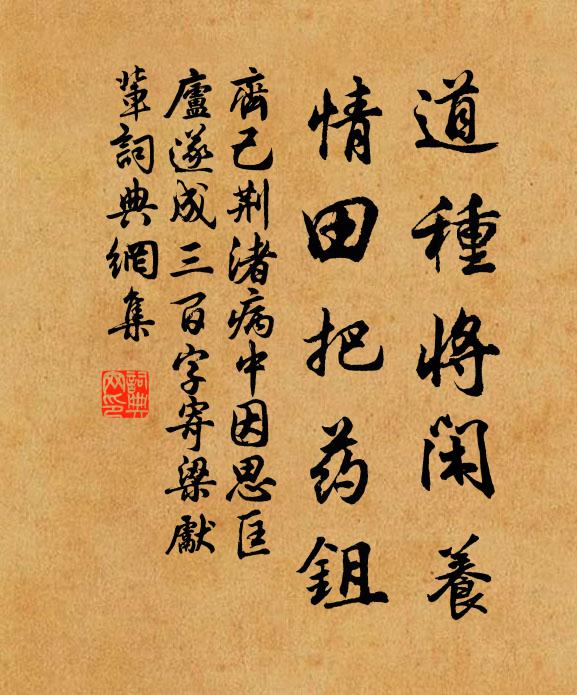 道種將閑養
情田把药鉏
齊己荆渚病中因思匡
廬遂成三百字寄梁獻
輩詞典網集
詞典
网印